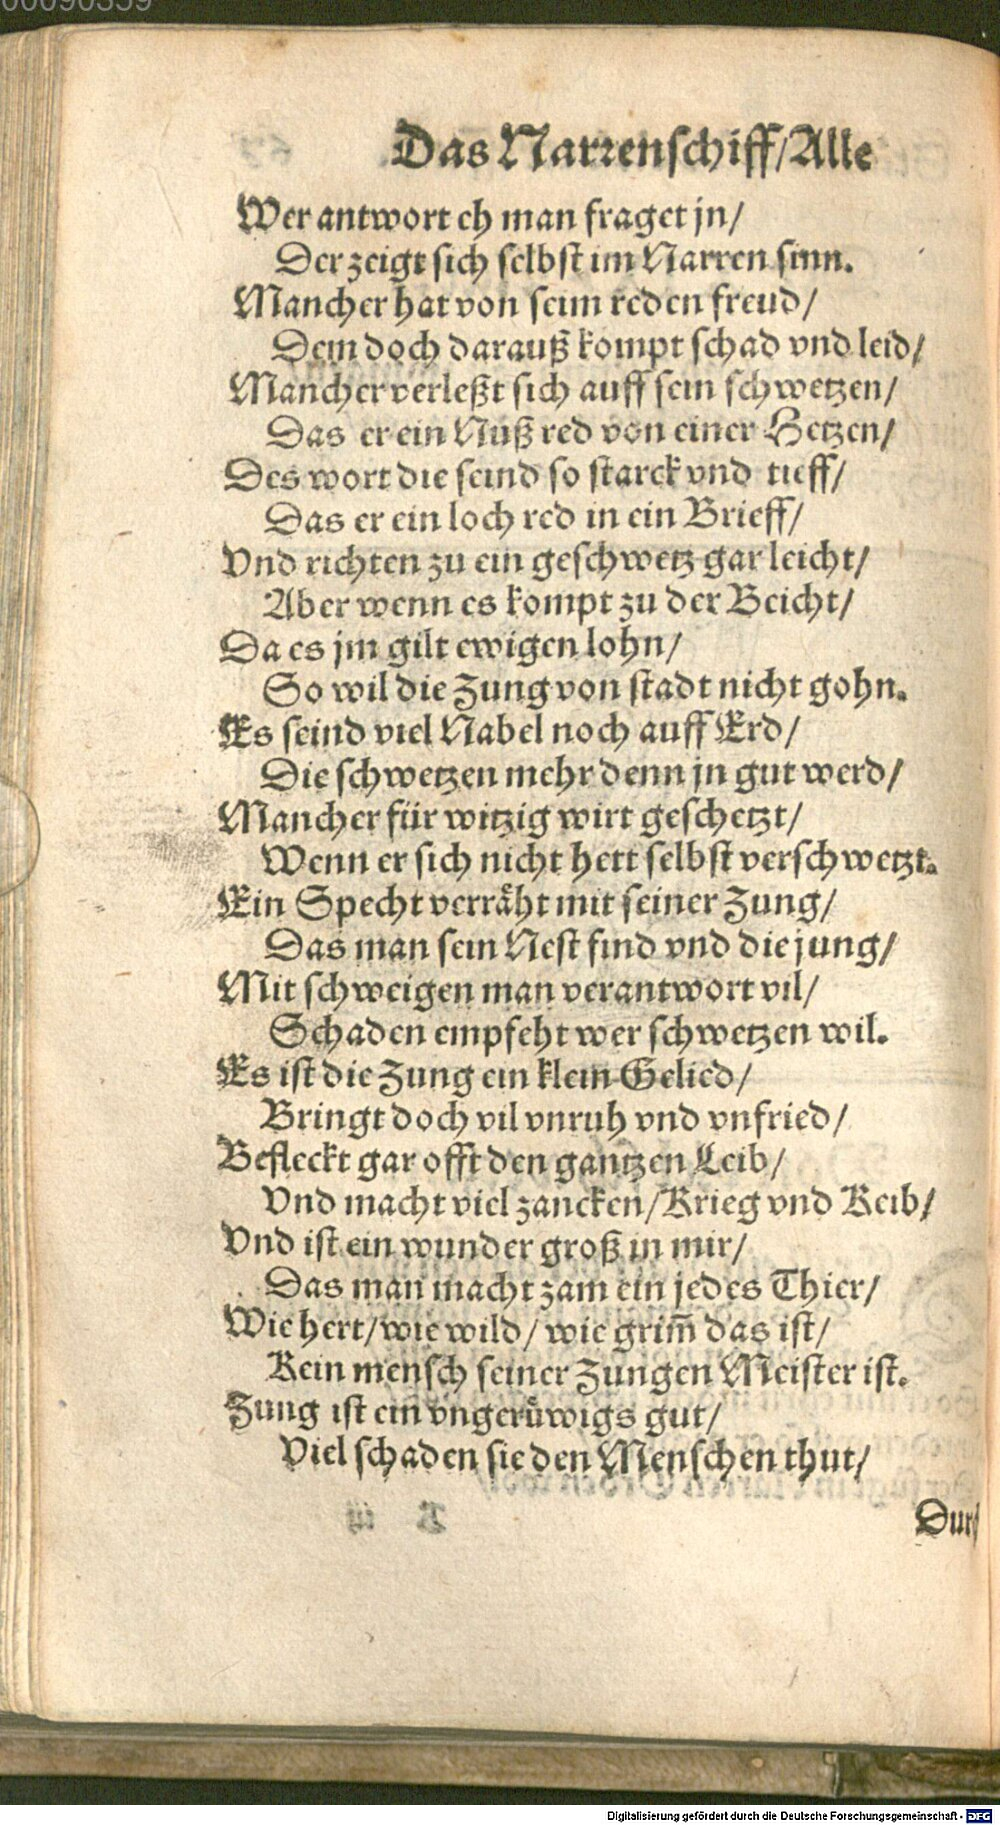 00090359
Das Narrenschiff/Alle
Wer antwort eh man fraget jn/
Der zeigt sich selbst im Narren sinn.
Mancher hat von seim reden freud/
Dem doch darauß kompt schad vnd leid/
Mancher verleßt sich auff sein schwetzen/
Das er ein Nuß red von einer Hetzen/
Des wort die seind so starck vnd tieff/
Das er ein loch red in ein Brieff/
Vnd richten zu ein geschwetz gar leicht/
Aber wenn es kompt zu der Beicht/
Da es jm gilt ewigen lohn/
So wil die Zung von stadt nicht gohn.
Es seind viel Nabel noch auff Erd/
Die schwetzen mehr denn jn gut werd/
Mancher für witzig wirt geschetzt/
Wenn er sich nicht hett selbst verschwetzt.
Ein Specht verräht mit seiner Zung/
Das man sein Nest find vnd die jung/
Mit schweigen man verantwort vil/
Schaden empfeht wer schwetzen wil.
Es ist die Zung ein klein Gelied/
Bringt doch vil vnruh vnd vnfried/
Befleckt gar offt den gantzen Leib/
Vnd macht viel zancken/Krieg vnd Keib/
Vnd ist ein wunder groß in mir/
Das man macht zam ein jedes Thier/
Wie hert/wie wild/wie grim̄ das ist/
Kein mensch seiner Zungen Meister ist.
Zung ist ein vngerüwigs gut/
Viel schaden sie den Menschen thut/
Digitalisierung gefördert durch die Deutsche Forschungsgemeinschaft - DFG